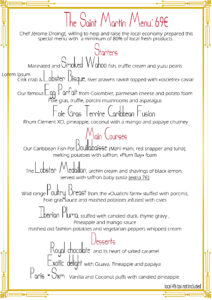 The Saint Martin Menu: 69€
Chef Jerome Drangi, willing to help and raise the local economy prepared this
special menu with a minimum of 80% of local fresh products.
Starters
Marinated and Smoked Wahoo fish, truffle cream and yuzu pearls
Lorem Ipsum
Crisp crab & Lobster Bisque, river prawns ravioli topped with
Our famous Egg Parfait from Colombier, parmesan cheese and potato foam
Foie gras, truffle, porcini mushrooms and asparagus
Foie Grass Terrine Caribbean Fusion
Rhum Clement XO, pineapple, coconut with a mango and papaya chutney
Main Courses
Our Caribbean Fish For Bouillabaisse (Mahi mahi, red snapper and tuna),
melting potatoes with saffron, «Plum Bay» foam
The Lobster Medallion, urchin cream and shavings of black lemon,
served with saffron baby pasta (extra 7€)
Wild range Poultry Breast from the farms stuffed with porcini,
Foie gras sauce and mashed potatoes infused with
Iberian Pluma, stuffed with candied duck, thyme gravy,
Pineapple and mango sauce
mashed old fashion potatoes with vegetarian peppers whipped cream
Desserts
Royal chocolate and its heart of salted caramel
Exotic delight with Guava, Pineapple and papaya
Paris - Sxm Vanilla and Coconut puffs with candied pineapple
local 4% tax not included